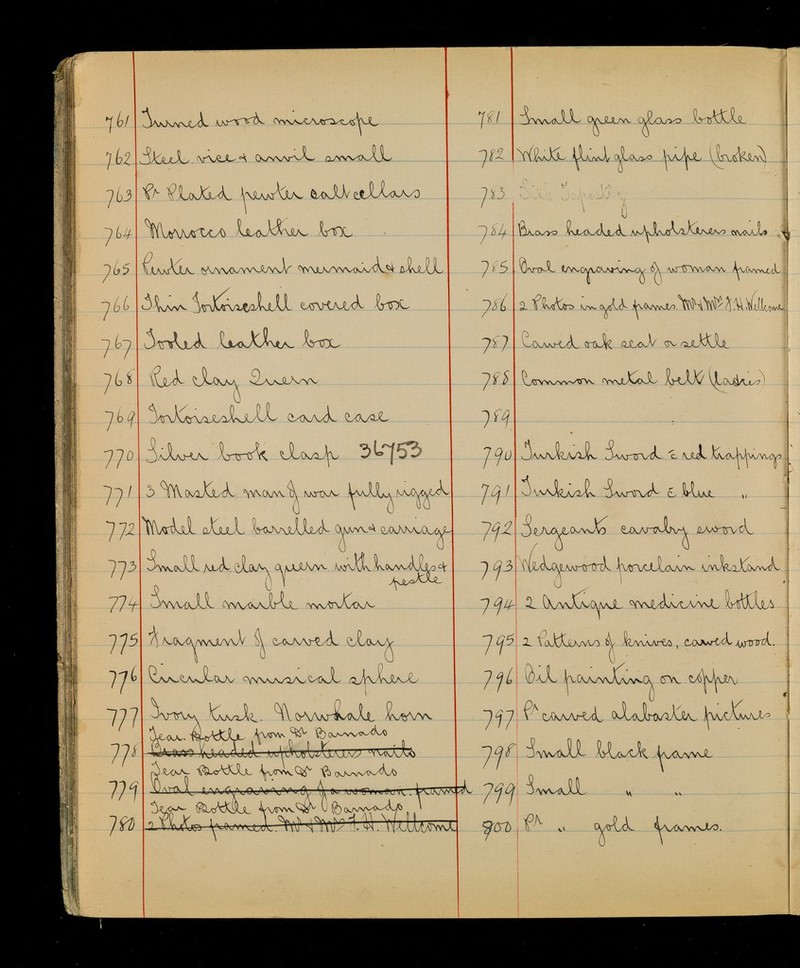 761 Turned wood microscope
762 Steel vice & anvil small
763 Pr Plated pewter salt cellars
764 Morrocco leather box
765 Pewter ornament mermaid & shell
766 Thin Tortoiseshell covered box
767 Tooled leather box
768 Red clay Quern
769 Tortoiseshell card case
770 Silver book clasp 36753
771 3 Masted man of war fully rigged
772 Model steel barrelled gun & carriage
773 Small red clay quern with handle &
pestle
774 Small marble mortar
775 Fragment of carved clay
776 Circular musical sphere
777 Ivory tusk. Norwhale horn
Tear Bottle from Dr Barnado
778 Brass headed upholsterers nails
Tear Bottle from Dr Barnado
779 Oval engraving of a woman. framed
Tear Bottle from Dr Barnado
780 2 Photos framed. Mr & Mrs F. H. Wellcome
781 Small green glass bottle
782 White flint glass pipe (broken)
783
784 Brass headed upholsterers nails
785 Oval engraving of woman framed
786 2 Photos in gold frames. Mr & Mrs F. H. Wellcome
787 Carved oak seat or settle
788 Common metal belt (Ladies)
789
790 Turkish Sword c̄ red trappings
791 Turkish Sword c̄ blue "
792 Sergeants cavalry sword
793 Wedgewood porcelain inkstand
794 2 Antique medicine bottles
795 2 Patterns of knives, carved wood.
796 Oil painting on copper
797 Pr carved alabaster pictures
798 Small black frame
799 Small " "
800 Pr " gold frames.